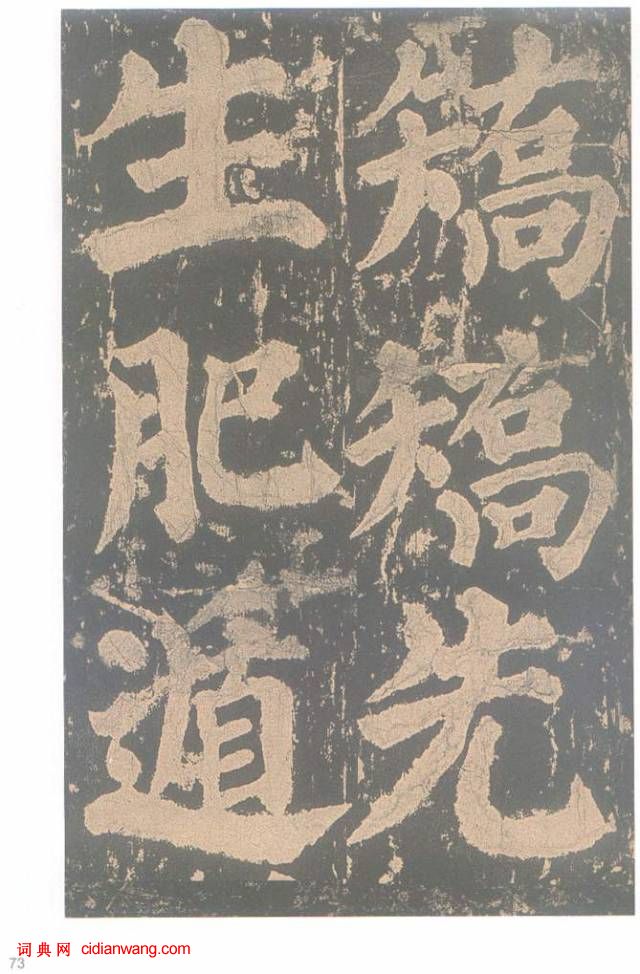 矯矯先
生肥遁
73
词典网 cidianwang.com